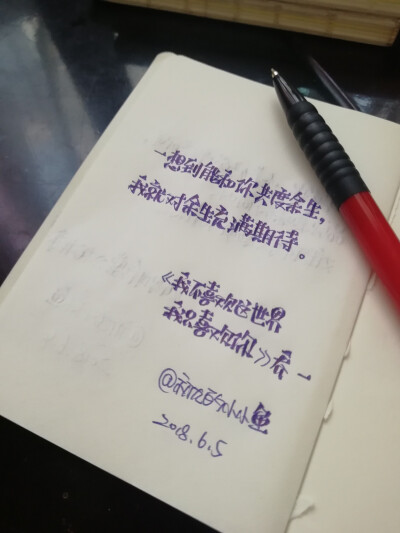 一想到能和你共度余生，
我就对余生充满期待。
《我不喜欢这世界
我只喜欢你》乔一
小鱼
2018.6.5